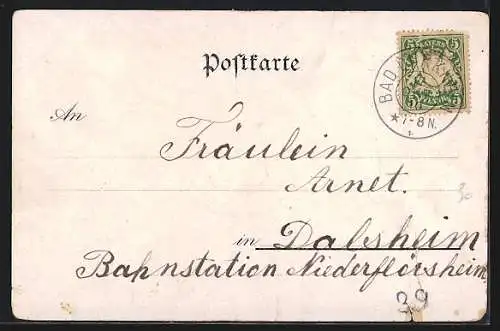 BAYERN
5 5
5 PFENNIG 5
BAD
7-8 N.
Postkarte
An
Fräulein
Arnet.
in Dalsheim
Bahnstation Niederflörsheim.
30
39